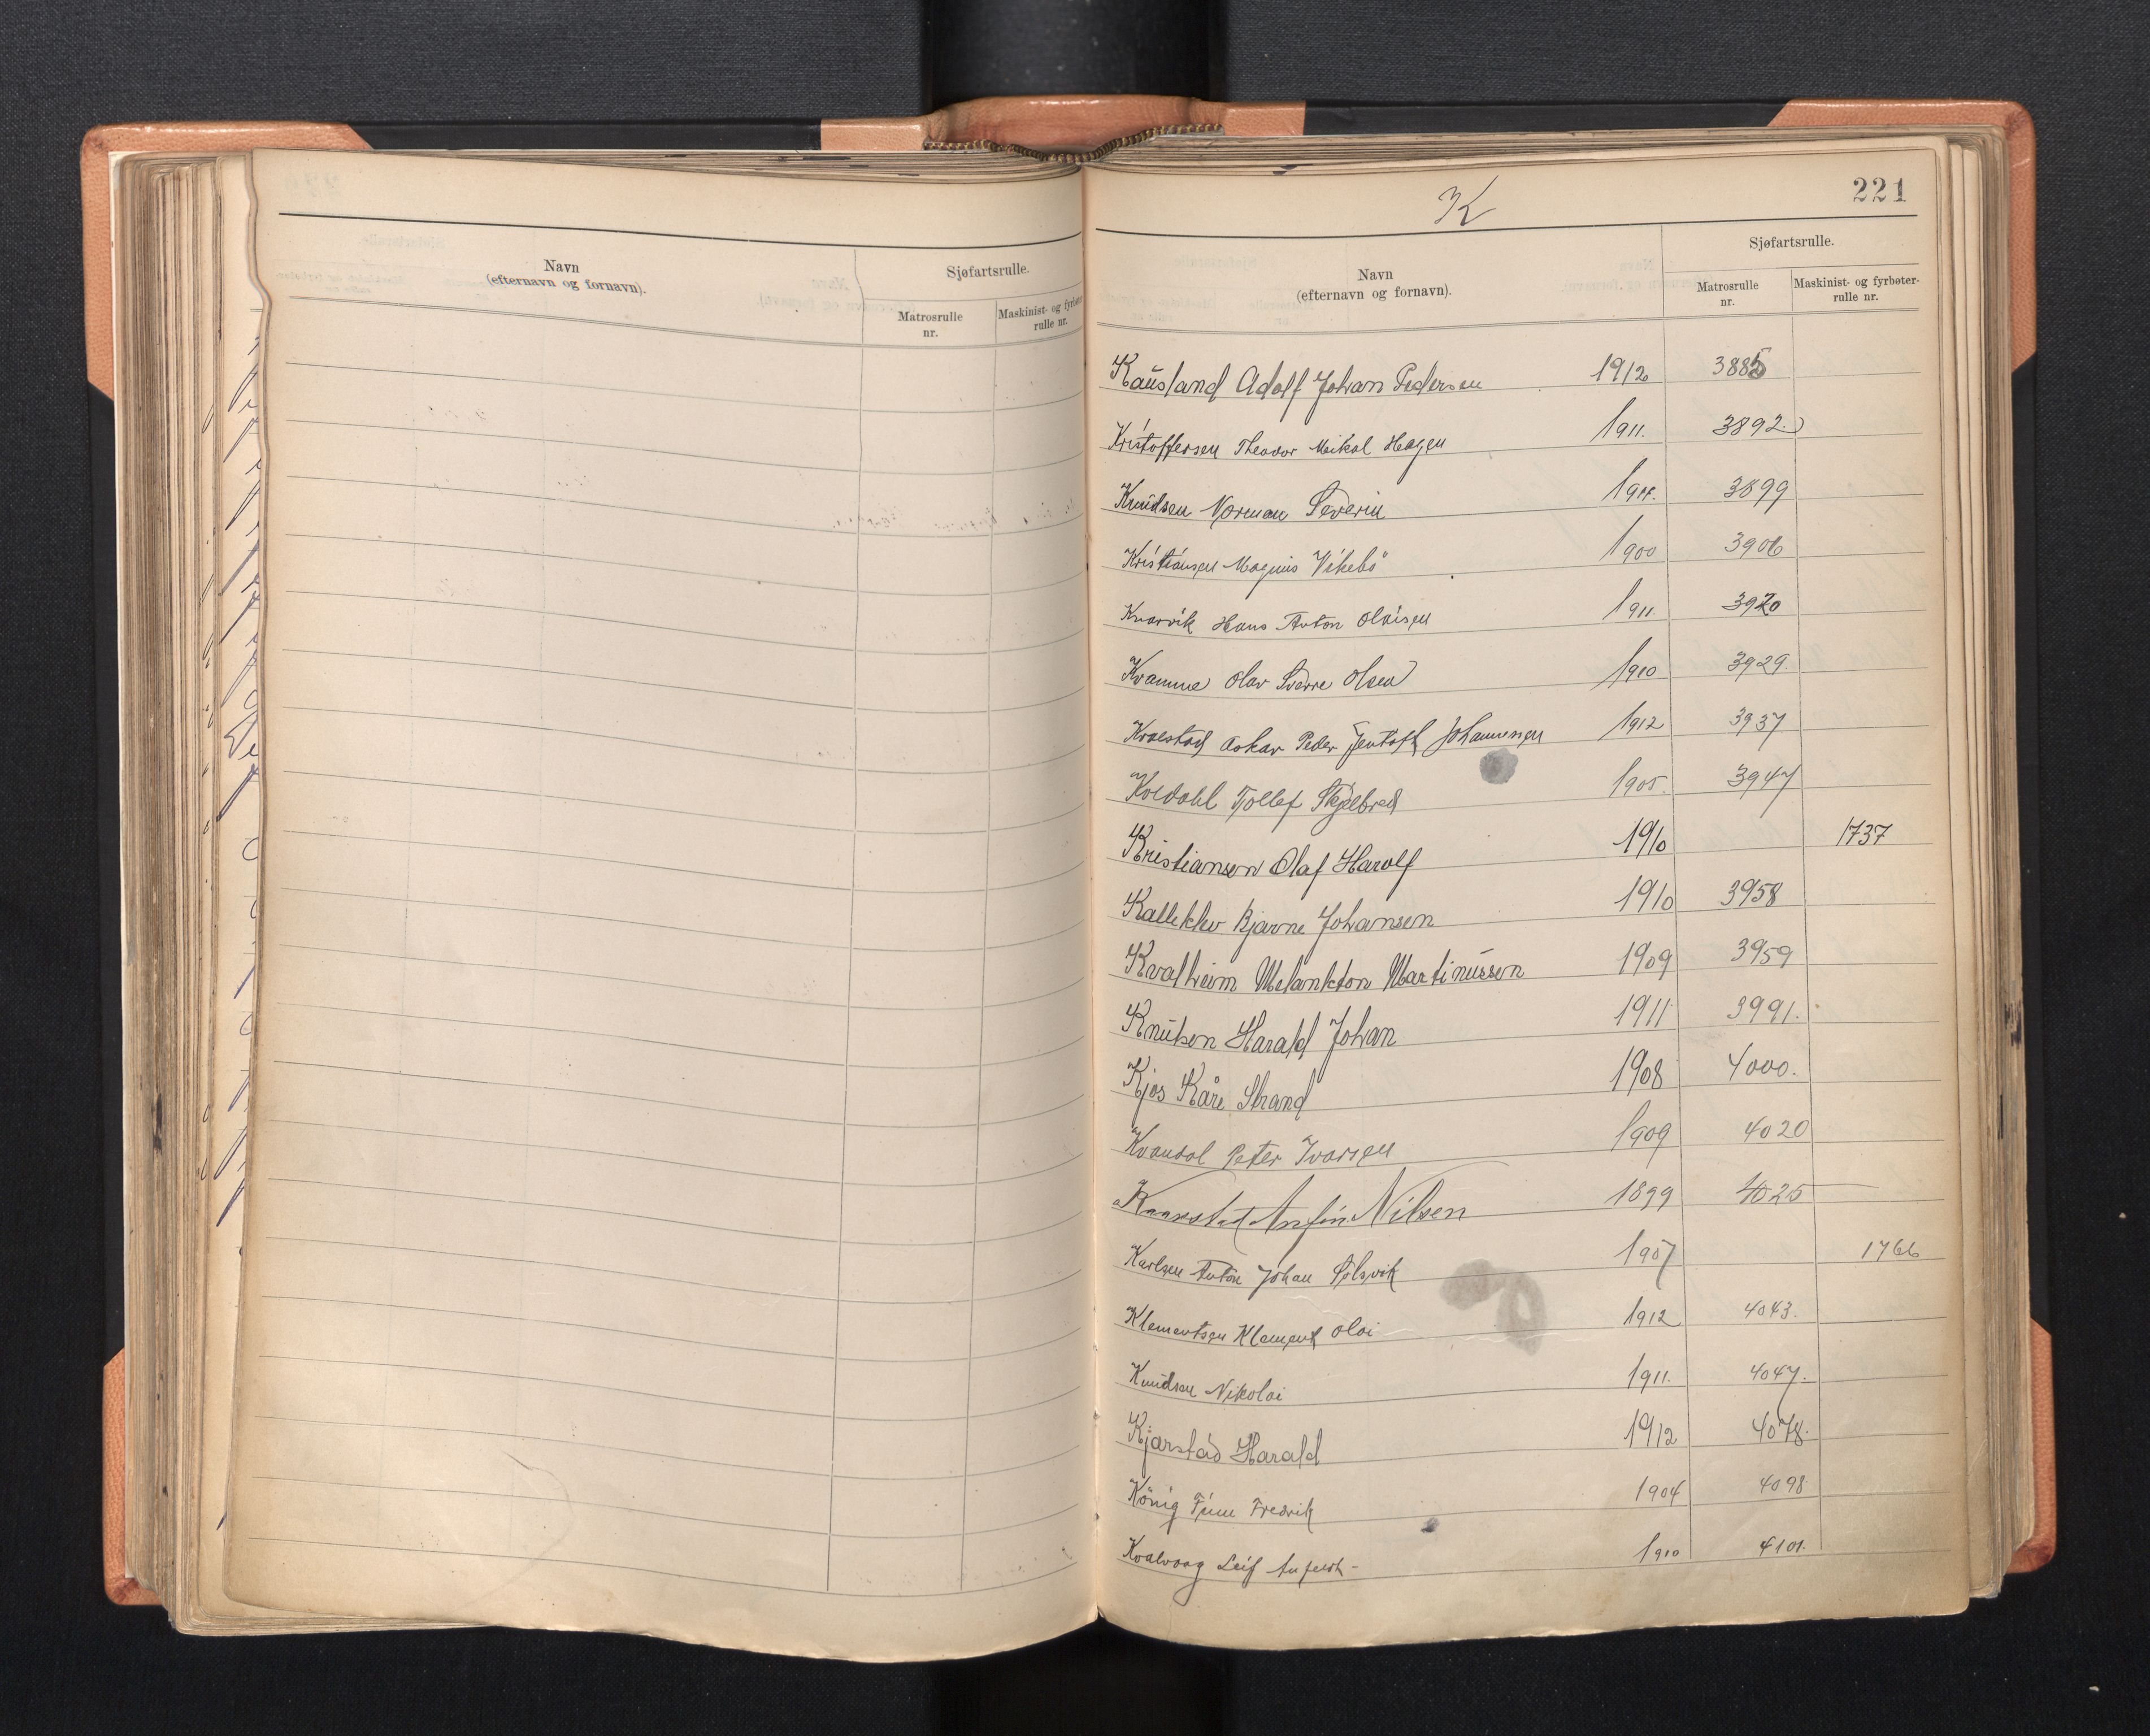 Navn
(efternavn og fornavn).
Sjøfartsrulle.
Matrosrulle
nr.
Maskinist- og fyrbøter-
rulle nr.
K
221
Navn
(efternavn og fornavn).
Sjøfartsrulle.
Matrosrulle
nr.
Maskinist- og fyrbøter-
rulle nr.
Kausland Adolf Johan Pedersen 1912 3885
Kristoffersen Theodor Meikal Hagen 1911. 3892.
Knudsen Norman Severin 3899
Kristiansen Magnus Vikebö 1900 3906
Kvarvik Hans Anton Olaisen 1911. 3920
Kvamme Olav Sverre Olsen 1910 3929.
Askar Peder Jentoft Johannesen 1912 3937
Koldahl Tjollef Skjelbred 1905. 3947
Kristiansen Olaf Harolf 1910 1737
Kalleklev Bjarne Johansen 1910 3958
Kvalheim Melankton Martinussen 1909 3959
Knutsen Harald Johan 1911 3991.
Kjos Kåre Strand 1908 4000.
Kvandal Peter Ivarsen 1909 4020
Kaarstad Anfin Nilsen 1899 4025
Karlsen Anton Johan Solsvik 1907 1766
Klementsen Klement Oloi 1912 4043.
Knudsen Nikolai 1911. 4047.
Kjarstad Harald 1912 4078.
König Finn Fredrik 1904 4098
Kvalvaag Leif 1910 4101.